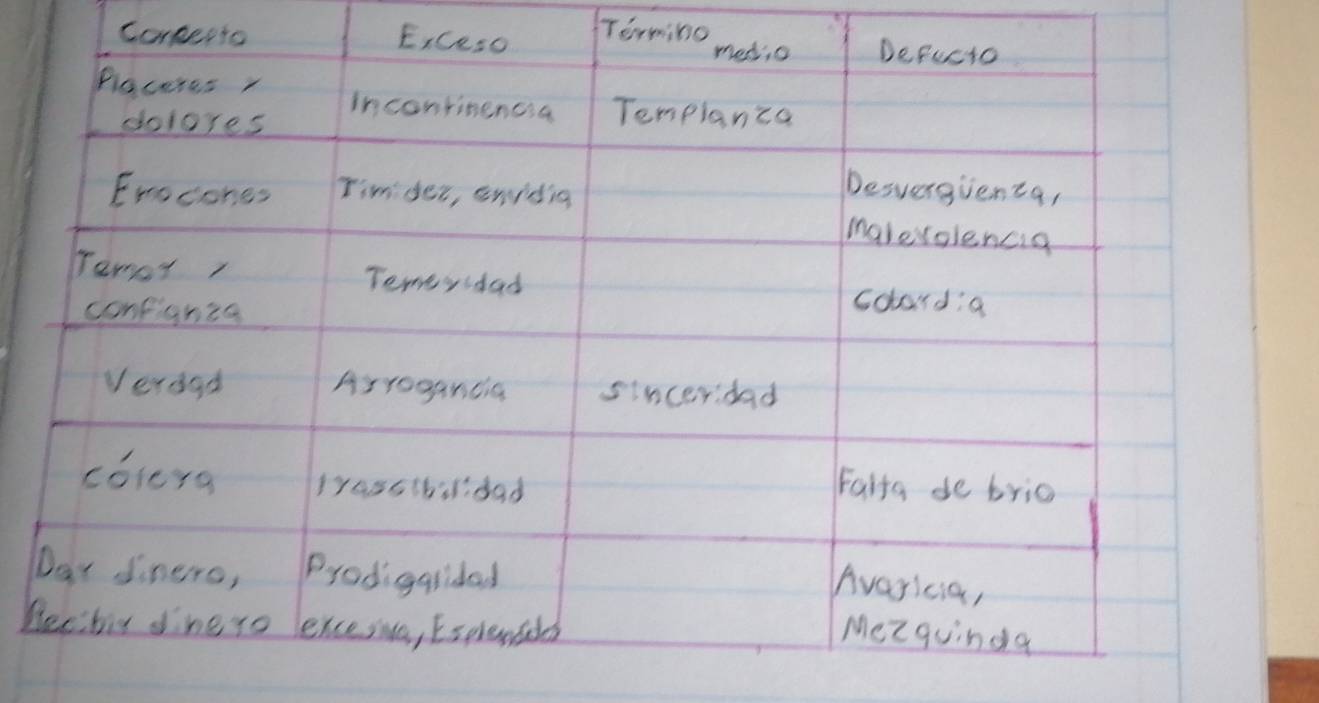 Concepto Exceso Término medio Defecto
Placeres y Incontinencia Templanza
dolores
Emociones Timidez, envidia Desvergüenza,
Malevolencia
Temor y Temeridad Cobardia
confianza
Verdad Arrogancia sinceridad
cólera Irascibilidad Falta de brio
Dar dinero, Prodigalidad Avaricia,
Recibir dinero excesiva, Esplendidez Mezquinda